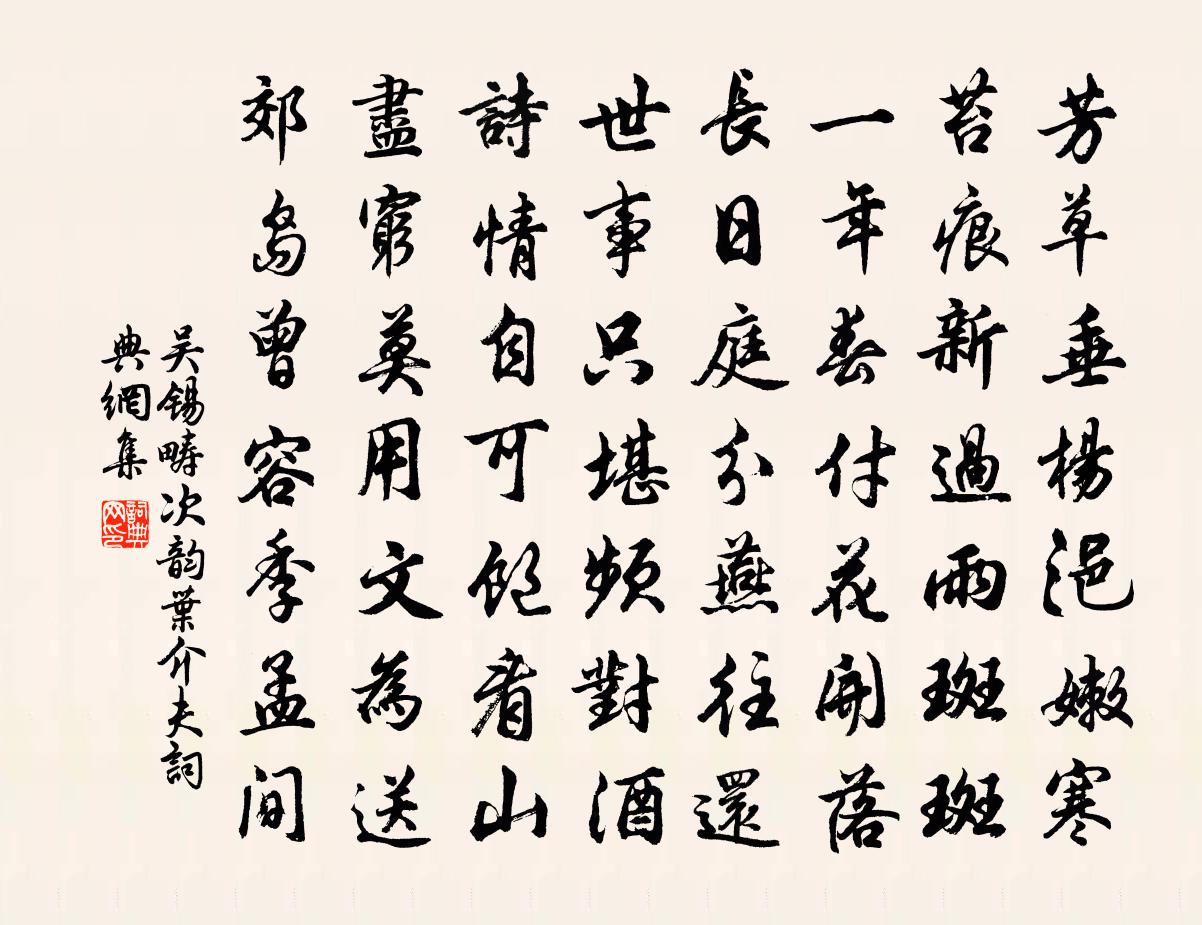 芳草垂楊浥嫩寒
苔痕新過雨斑斑
一年春付花開落
長日庭分燕往還
世事只堪頻對酒
詩情自可飽看山
盡窮莫用文為送
郊島曾容季孟間
吴錫疇次韵葉介夫詞
典網集
詞典
网印